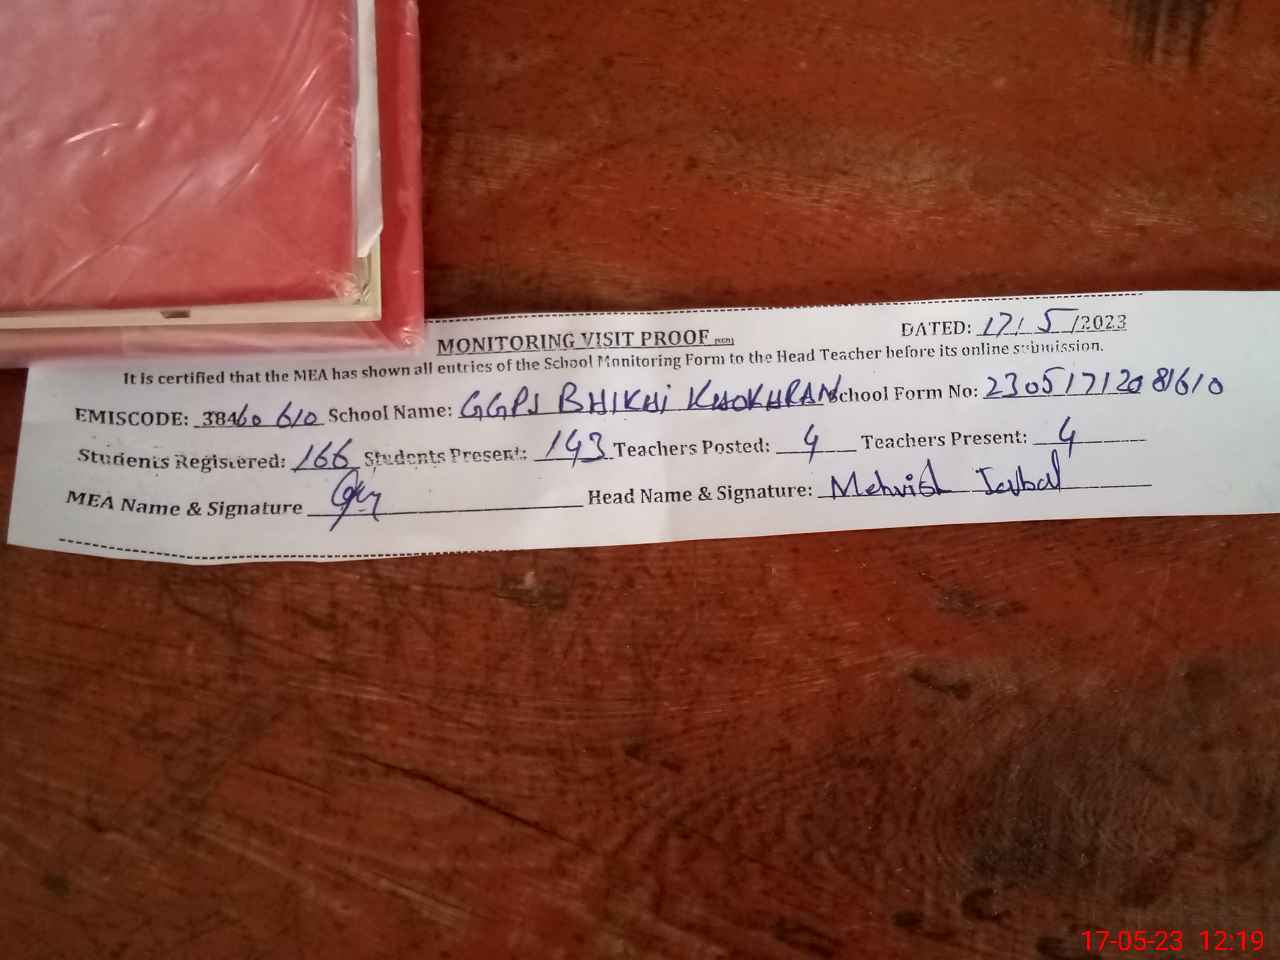 MONITORING VISIT PROOF
DATED: 17/5/2023
It is certified that the MEA has shown all entries of the School Monitoring Form to the Head Teacher before its online submission.
EMISCODE: 38460 610 School Name: GGPS BHIKHI KHOKHRAN School Form No: 230517120 81610
Students Registered: 166 Students Present: 143 Teachers Posted: 4 Teachers Present: 4
MEA Name & Signature Head Name & Signature: Mehvish Iqbal
17-05-23 12:19